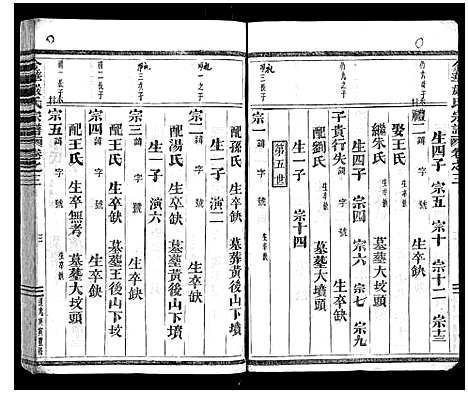 生四子 宗五 宗十 宗十二 宗十三
禮二 諱 字 號 生卒缺
娶王氏
繼朱氏 生卒缺 墓塟大坟頭
生四子 宗四 宗六 宗七 宗九
子貴行失 諱 字 號
配劉氏 生卒缺 墓塟
生一子 宗十四
第五世
宗一 諱 字 號 生卒缺
配孫氏 生卒缺 墓葬黄後山下墳
生一子 演二
宗二 諱 字 號 生卒缺
配湯氏 生卒缺 墓塟黄後山下墳
生一子 演六
宗三 諱 字 號 生卒缺
配王氏 生卒缺 墓塟王後山下坟
宗四 諱 字 號 生卒缺
配王氏 生卒無考 墓塟大坟頭
宗五 諱 字 號 生卒缺
三